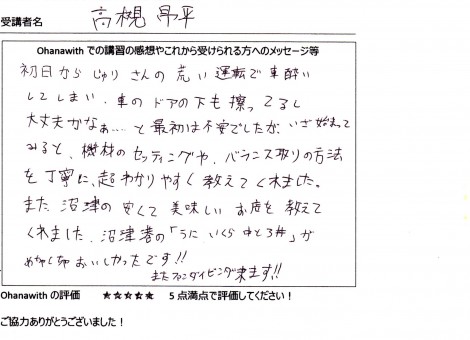 受講者名 高槻 昂平
Ohanawith での講習の感想やこれから受けられる方へのメッセージ等
初日から じゅり さんの 荒い 運転で 車酔い
してしまい、車の ドアの下も 擦ってるし
大丈夫かなぁ…… と 最初は 不安でしたが、いざ始まって
みると、機材の セッティングや、バランス取りの方法
を 丁寧に、超わかりやすく 教えてくれました。
また 沼津の 安くて 美味しい お店を 教えて
くれました、沼津港の「うに いくら 中とろ丼」が
めちゃくちゃ おいしかったです!!
またファンダイビング来ます!!
Ohanawith の評価 ★★★★★ 5 点満点で評価してください！
ご協力ありがとうございました！